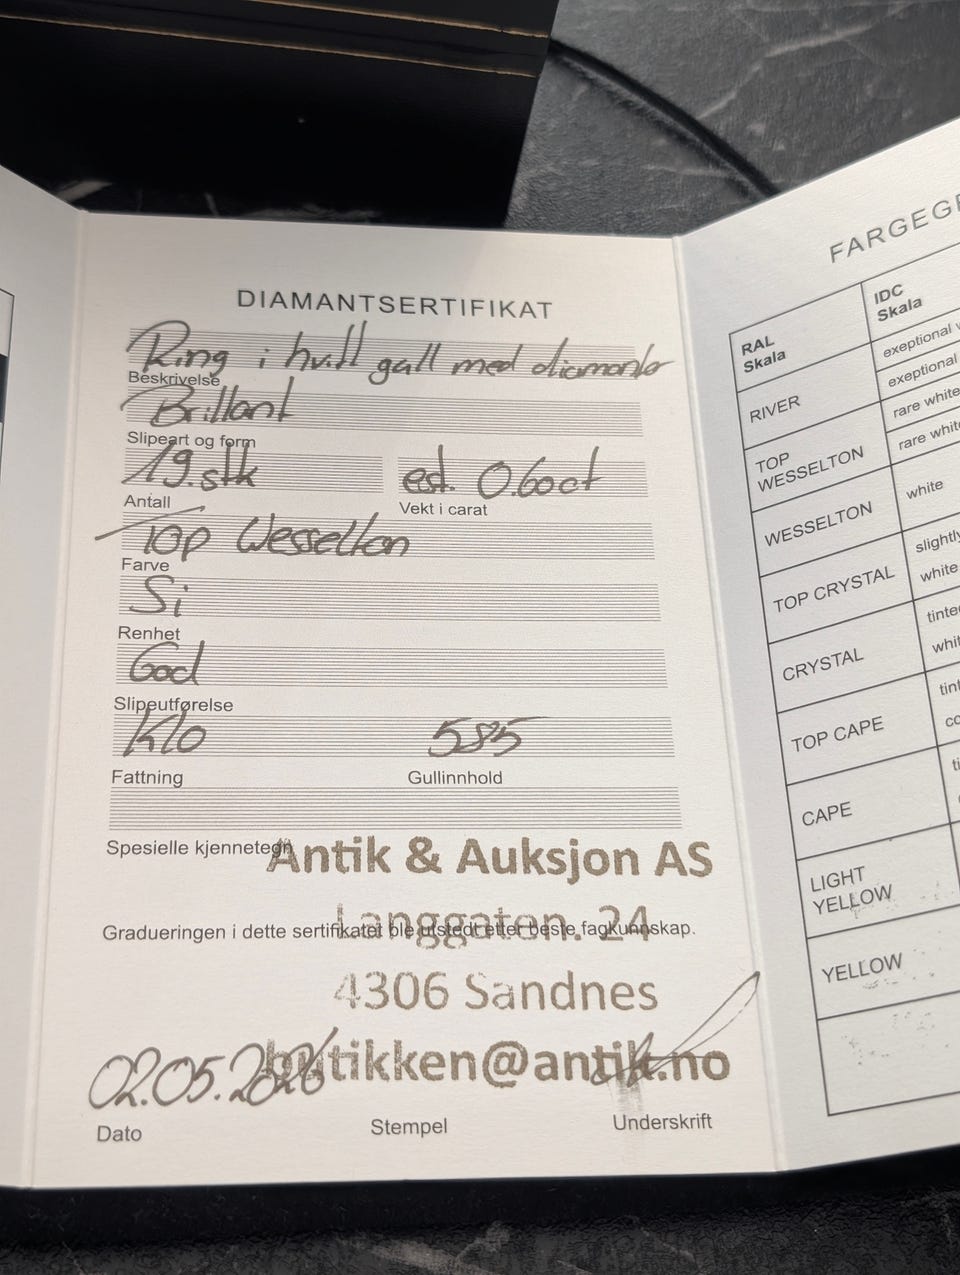 DIAMANTSERTIFIKAT
Ring i hvitt gull med diamanter
Beskrivelse
Brillant
Slipeart og form
19.stk est. 0.60ct
Antall Vekt i carat
Top Wesselton
Farve
Si
Renhet
God
Slipeutførelse
Klo 585
Fattning Gullinnhold
Spesielle kjennetegn
Antik & Auksjon AS
Langgaten. 24
Gradueringen i dette sertifikatet ble utstedt etter beste fagkunnskap.
4306 Sandnes
butikken@antik.no
02.05.2026
Dato Stempel Underskrift
FARGEG
RAL Skala
IDC Skala
RIVER
exeptional
exeptional
TOP WESSELTON
rare white
rare white
WESSELTON
white
TOP CRYSTAL
slightly
white
CRYSTAL
TOP CAPE
CAPE
LIGHT YELLOW
YELLOW